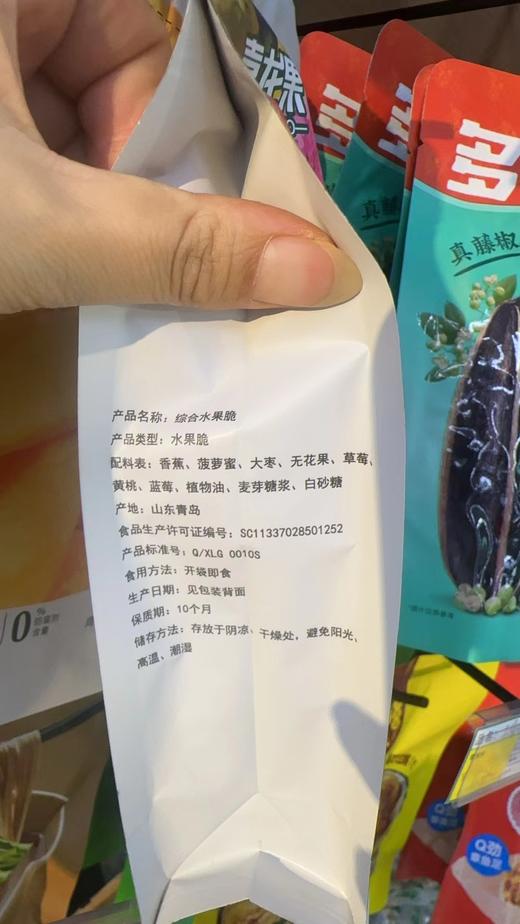 青龙果
多
多
多
真藤
真藤椒
产品名称：综合水果脆
产品类型：水果脆
配料表：香蕉、菠萝蜜、大枣、无花果、草莓、
黄桃、蓝莓、植物油、麦芽糖浆、白砂糖
产地：山东青岛
食品生产许可证编号：SC11337028501252
产品标准号：Q/XLG 0010S
食用方法：开袋即食
生产日期：见包装背面
保质期：10个月
储存方法：存放于阴凉、干燥处，避免阳光、
高温、潮湿
0%
含量
Q劲
章鱼足
Q劲